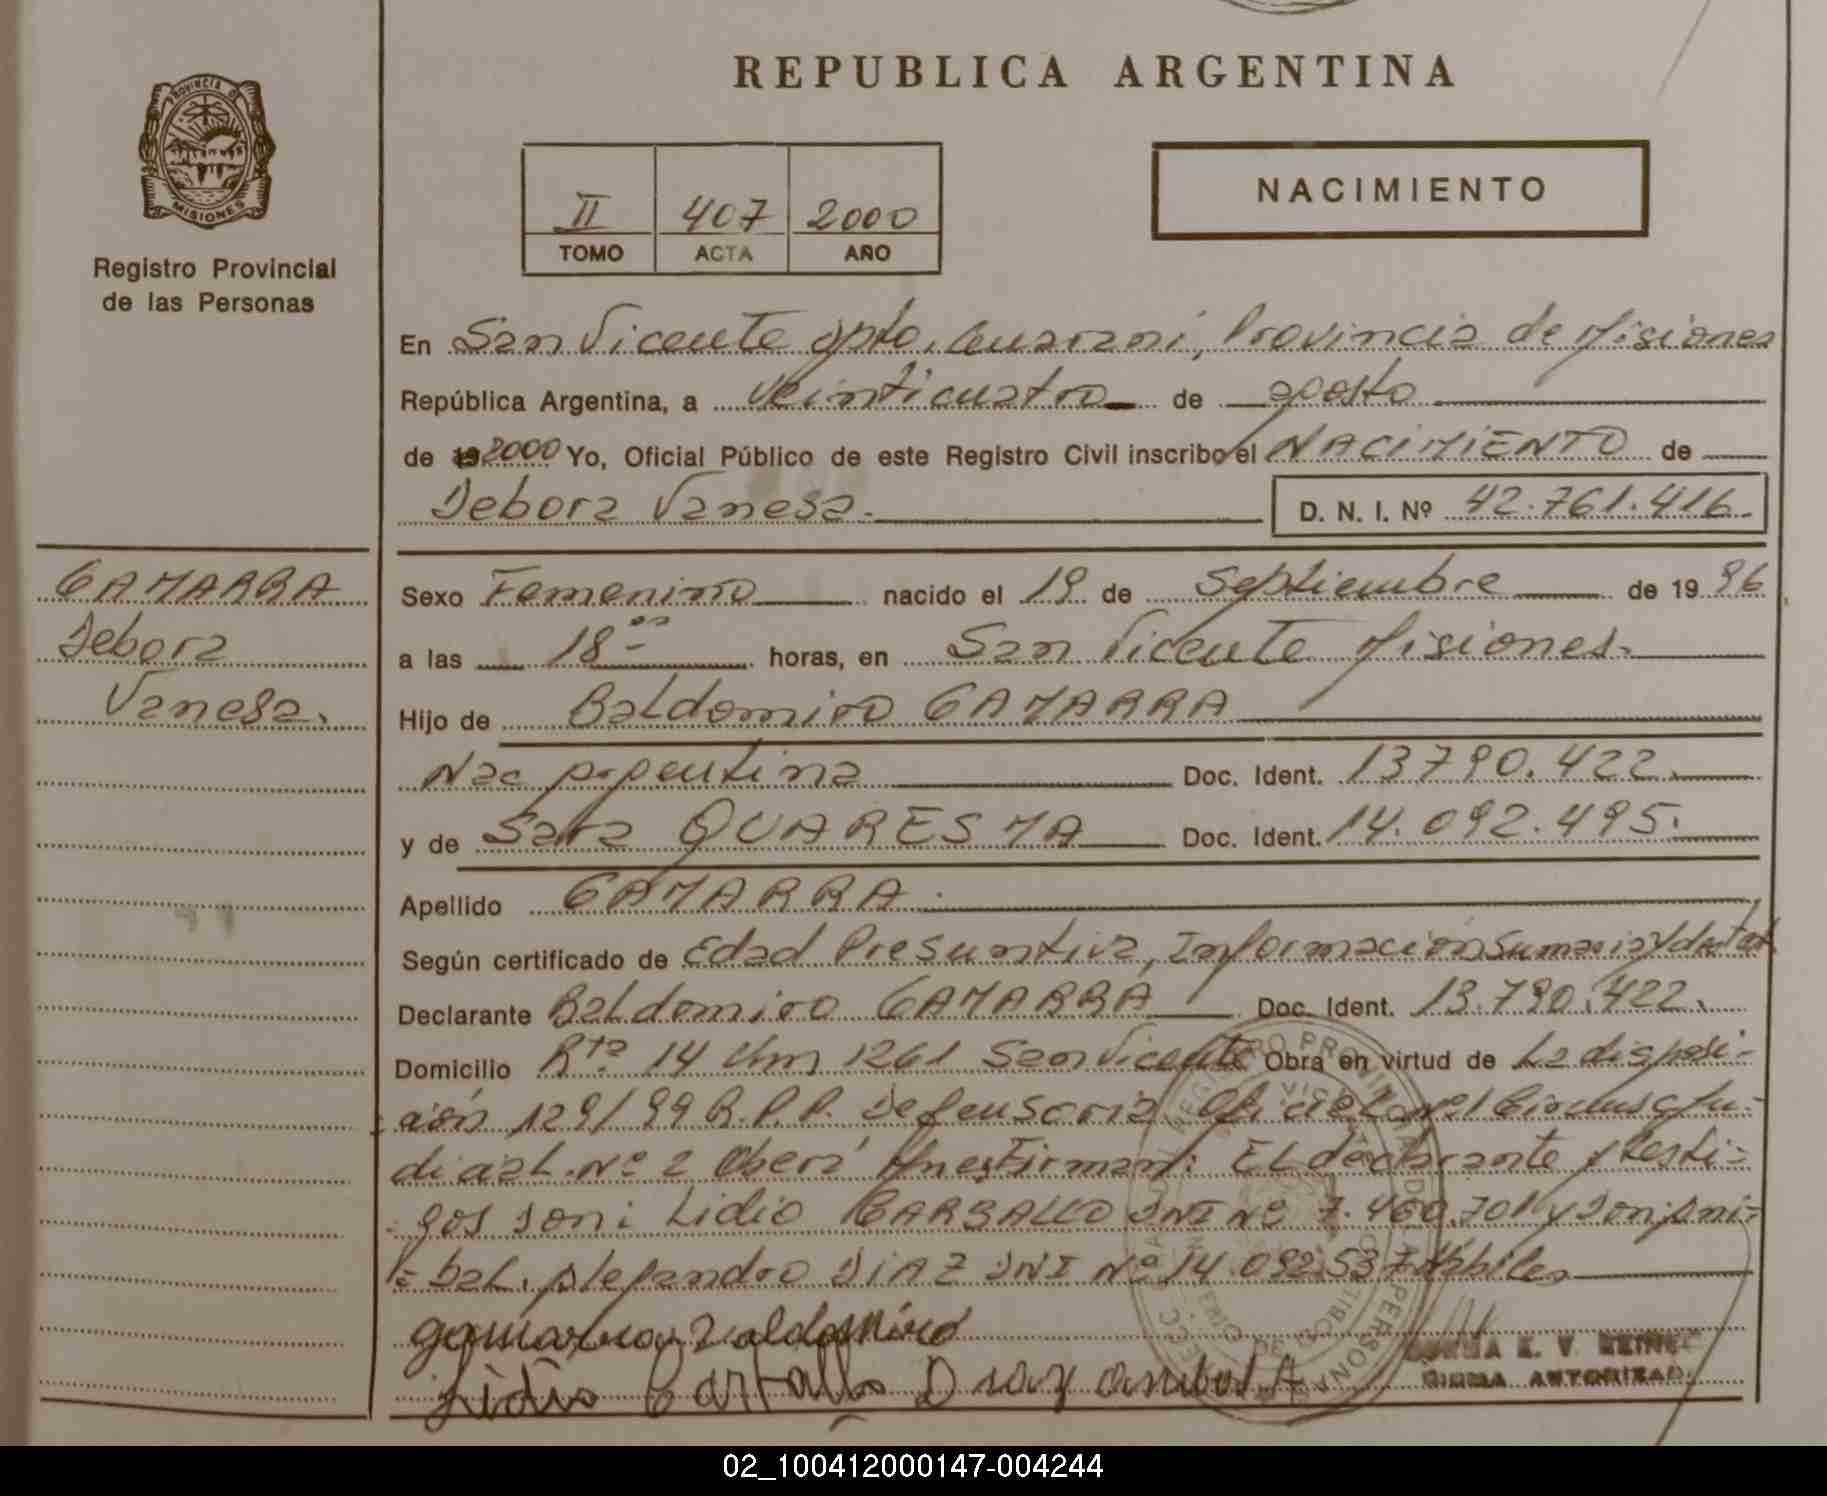 REPUBLICA ARGENTINA
PROVINCIA DE
MISIONES
Registro Provincial
de las Personas
II 407 2000
TOMO ACTA AÑO
NACIMIENTO
En San Vicente Dpto. Guarani, Provincia de Misiones
República Argentina, a veinticuatro de agosto
de 19 2000 Yo, Oficial Público de este Registro Civil inscribo el NACIMIENTO de
Debora Vanesa. D. N. I. Nº 42.761.416
GAMARRA
Debora
Vanesa.
Sexo Femenino nacido el 19 de Septiembre de 19 96
a las 18 horas, en San Vicente Misiones.
Hijo de Baldomiro GAMARRA
Nac Argentina Doc. Ident. 13790.422.
y de Sara QUARESMA Doc. Ident. 14.092.495.
Apellido GAMARRA.
Según certificado de Edad Presuntiva, Información Sumaria y
Declarante Baldomiro GAMARRA Doc. Ident. 13.790.422.
Domicilio Rta 14 Km 1261 San Vicente Obra en virtud de La disposi-
ción 129/99 R.P.P. Defensoria Oficial nº1
dicial. Nº 2 Oberá Mnes Firman: El declarante y testi-
gos Don: Lidio CARBALLO DNI Nº 7.460.701 y Don: Ani-
bal. Alejandro DIAZ DNI Nº 14.092.537 Hábiles
gamarra Baldomiro
Lidio Carballo Diaz anibal A
NORMA E. V.
FIRMA AUTORIZAD
02_100412000147-004244